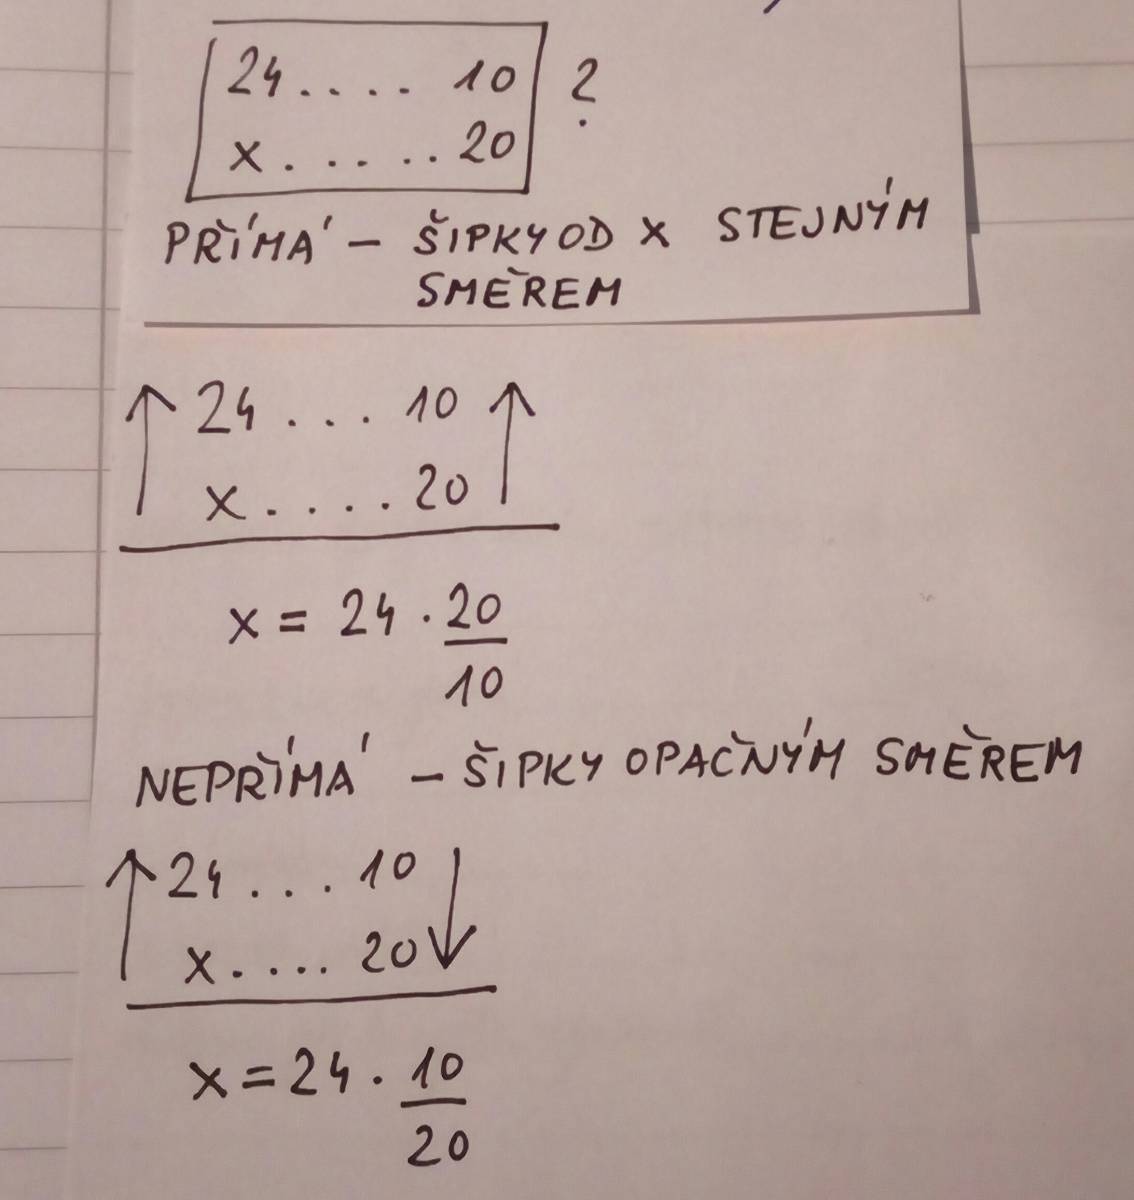 24 . . . . 10 ?
x . . . . . 20
PŘÍMÁ – ŠIPKY OD x STEJNÝM
SMĚREM
↑ 24 . . . 10 ↑
x . . . . 20
x = 24 · 20/10
NEPŘÍMÁ – ŠIPKY OPAČNÝM SMĚREM
↑ 24 . . . 10 ↓
x . . . . 20
x = 24 · 10/20